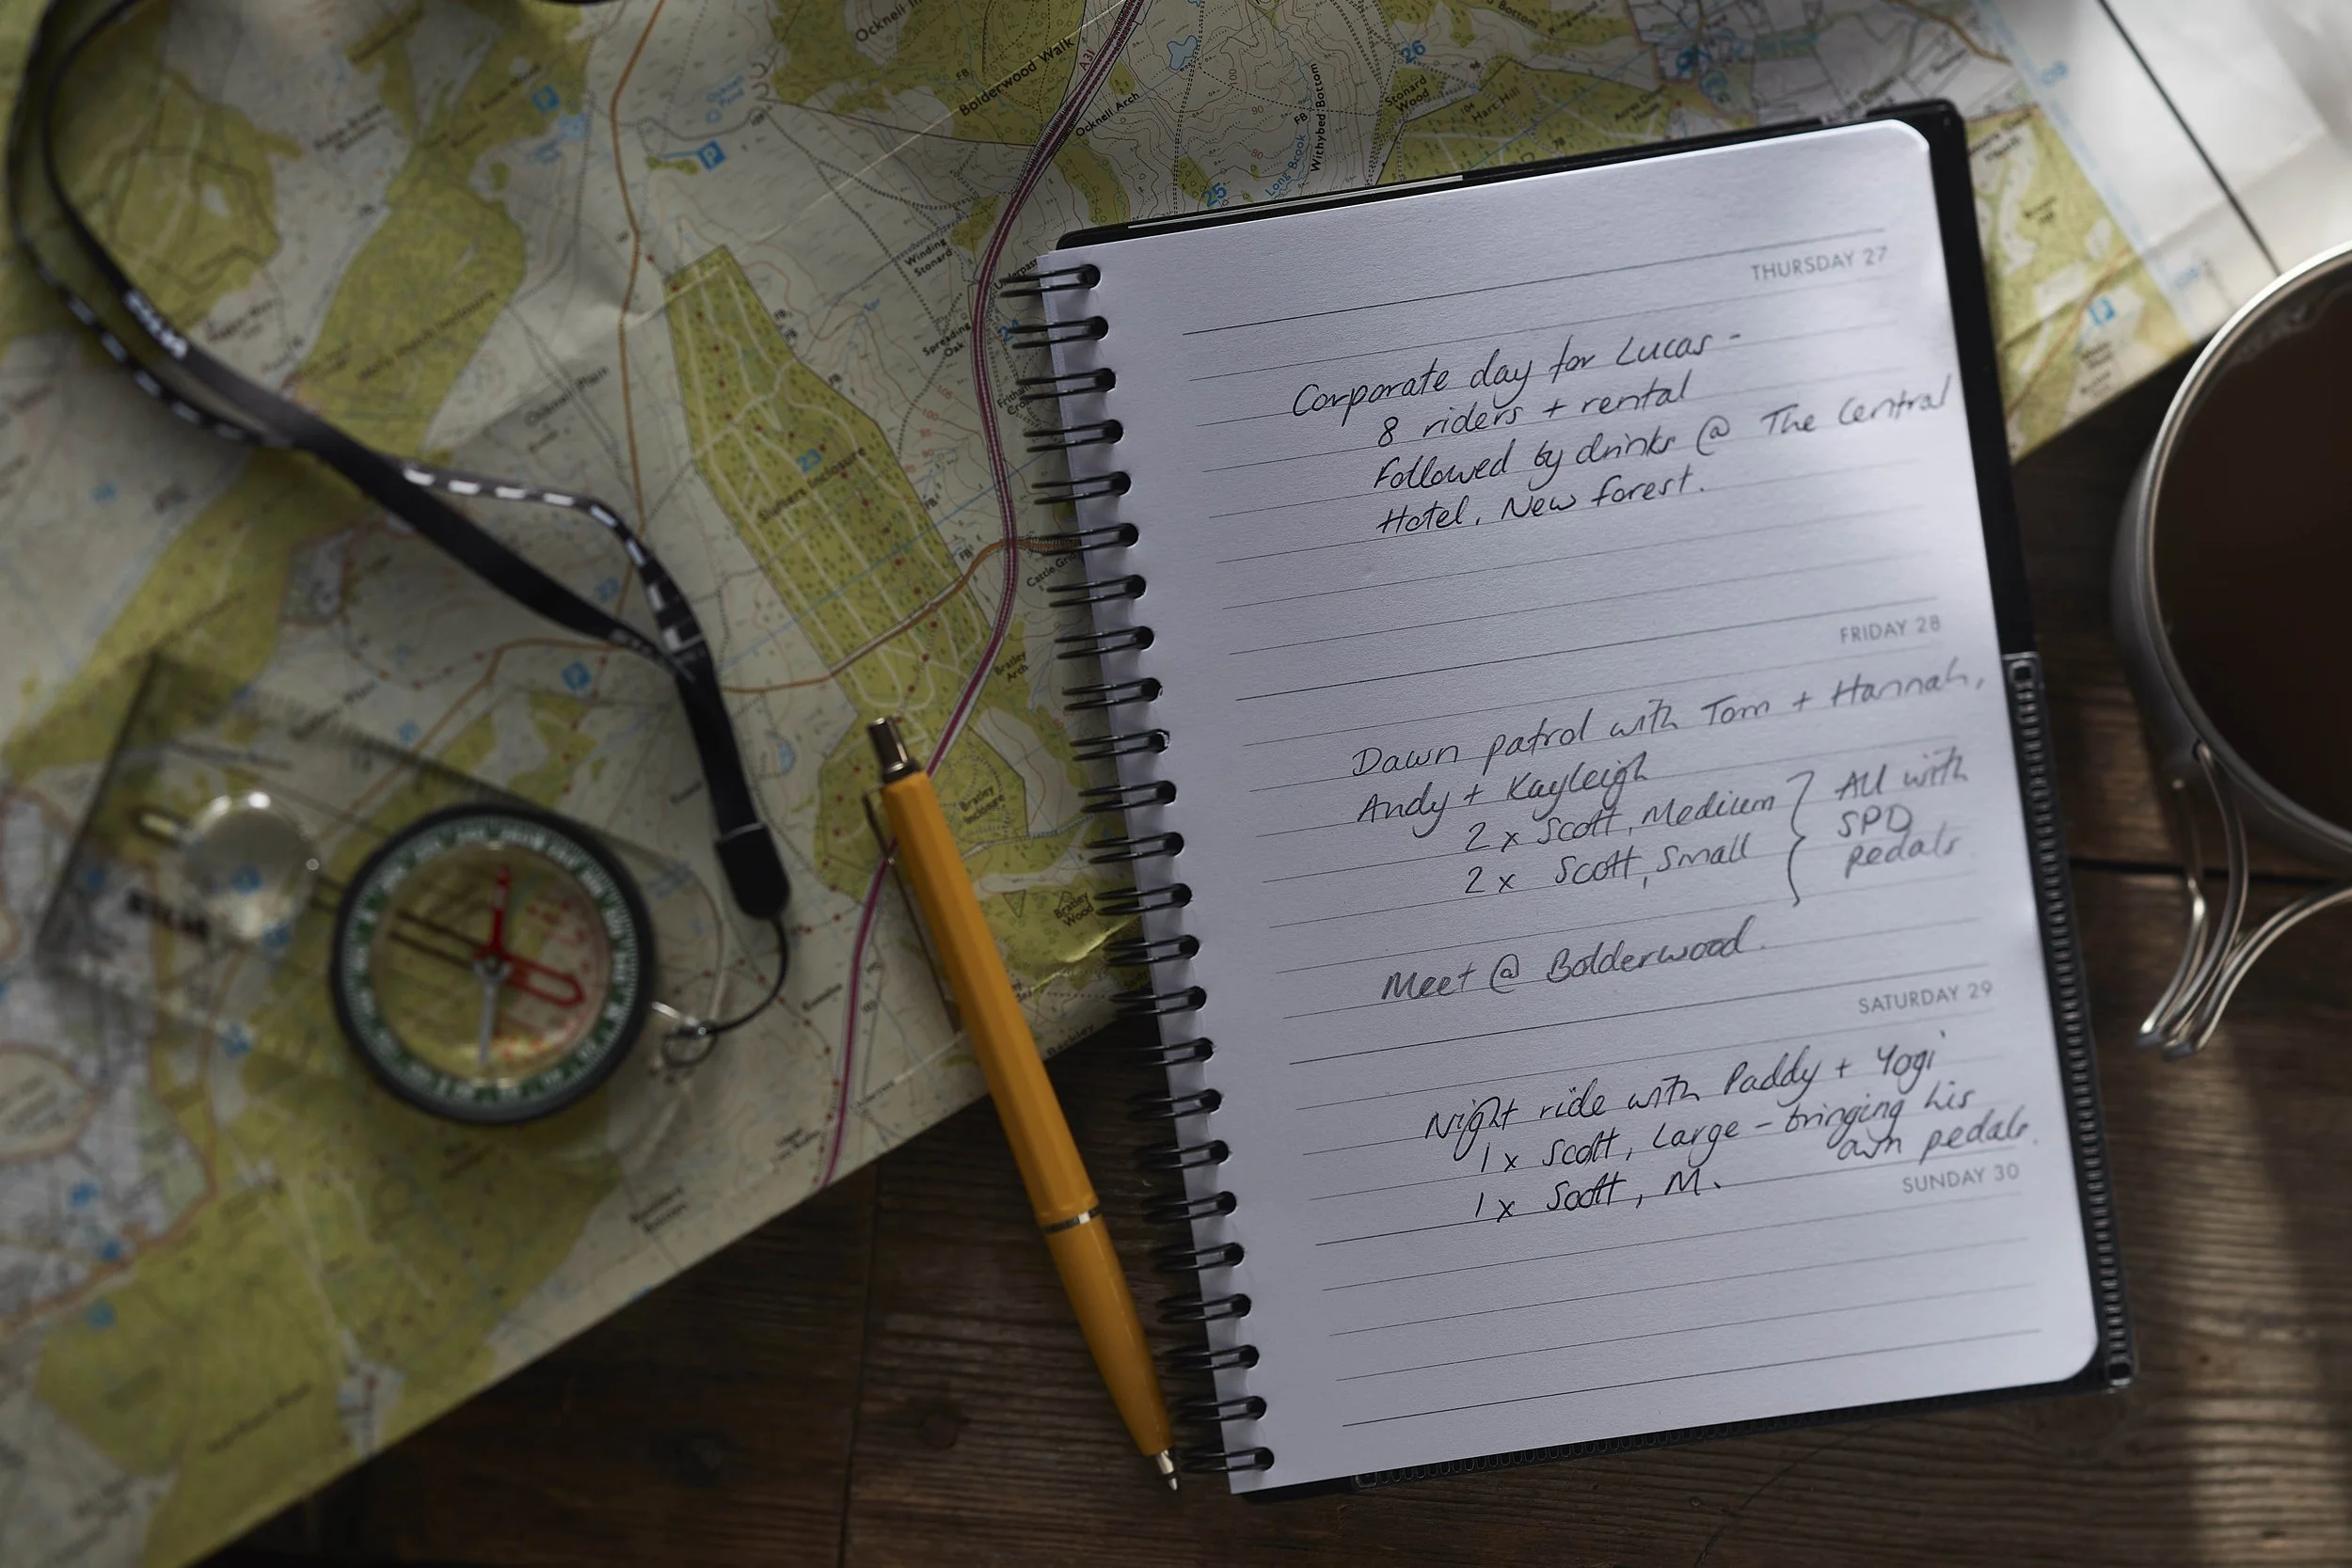 Ocknell
Bolderwood Walk
A31
Ocknell Arch
FB
26
Stonard
Wood
Hart Hill
Withybed Bottom
FB
Long Brook
25
P
Winding
Stonard
Underpass
24
Spreading
Oak
23
Slufters Inclosure
FB
FB
FB
Bratley
Arch
Bratley
Inclosure
Bratley
Wood
Ocknell Plain
THURSDAY 27
Corporate day for Lucas -
8 riders + rental
Followed by drinks @ The Central
Hotel, New forest.
FRIDAY 28
Dawn patrol with Tom + Hannah,
Andy + Kayleigh
2 x Scott, Medium } All with
2 x Scott, Small } SPD
pedals
Meet @ Bolderwood.
SATURDAY 29
Night ride with Paddy + Yogi
1 x Scott, Large - bringing his
own pedals.
1 x Scott, M.
SUNDAY 30